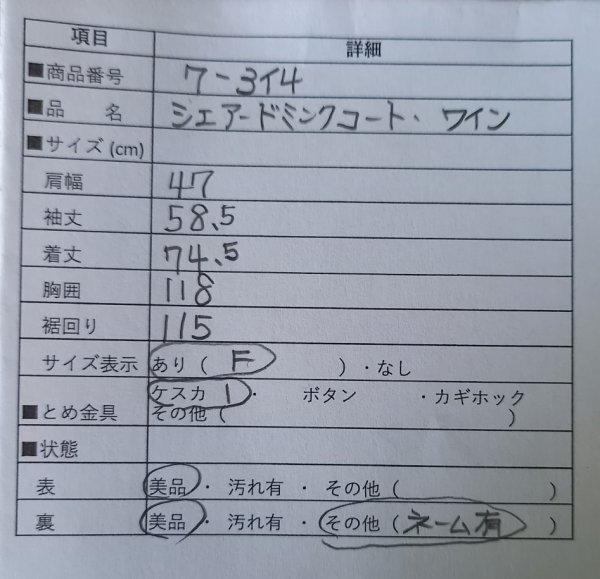 項目 詳細
■商品番号 7-314
■品 名 シェアードミンクコート・ワイン
■サイズ(cm)
肩幅 47
袖丈 58.5
着丈 74.5
胸囲 118
裾回り 115
サイズ表示 あり( F )・なし
ケスカ 1・ ボタン ・カギホック
■とめ金具 その他( )
■状態
表 美品・ 汚れ有 ・ その他( )
裏 美品・ 汚れ有 ・ その他(ネーム有 )